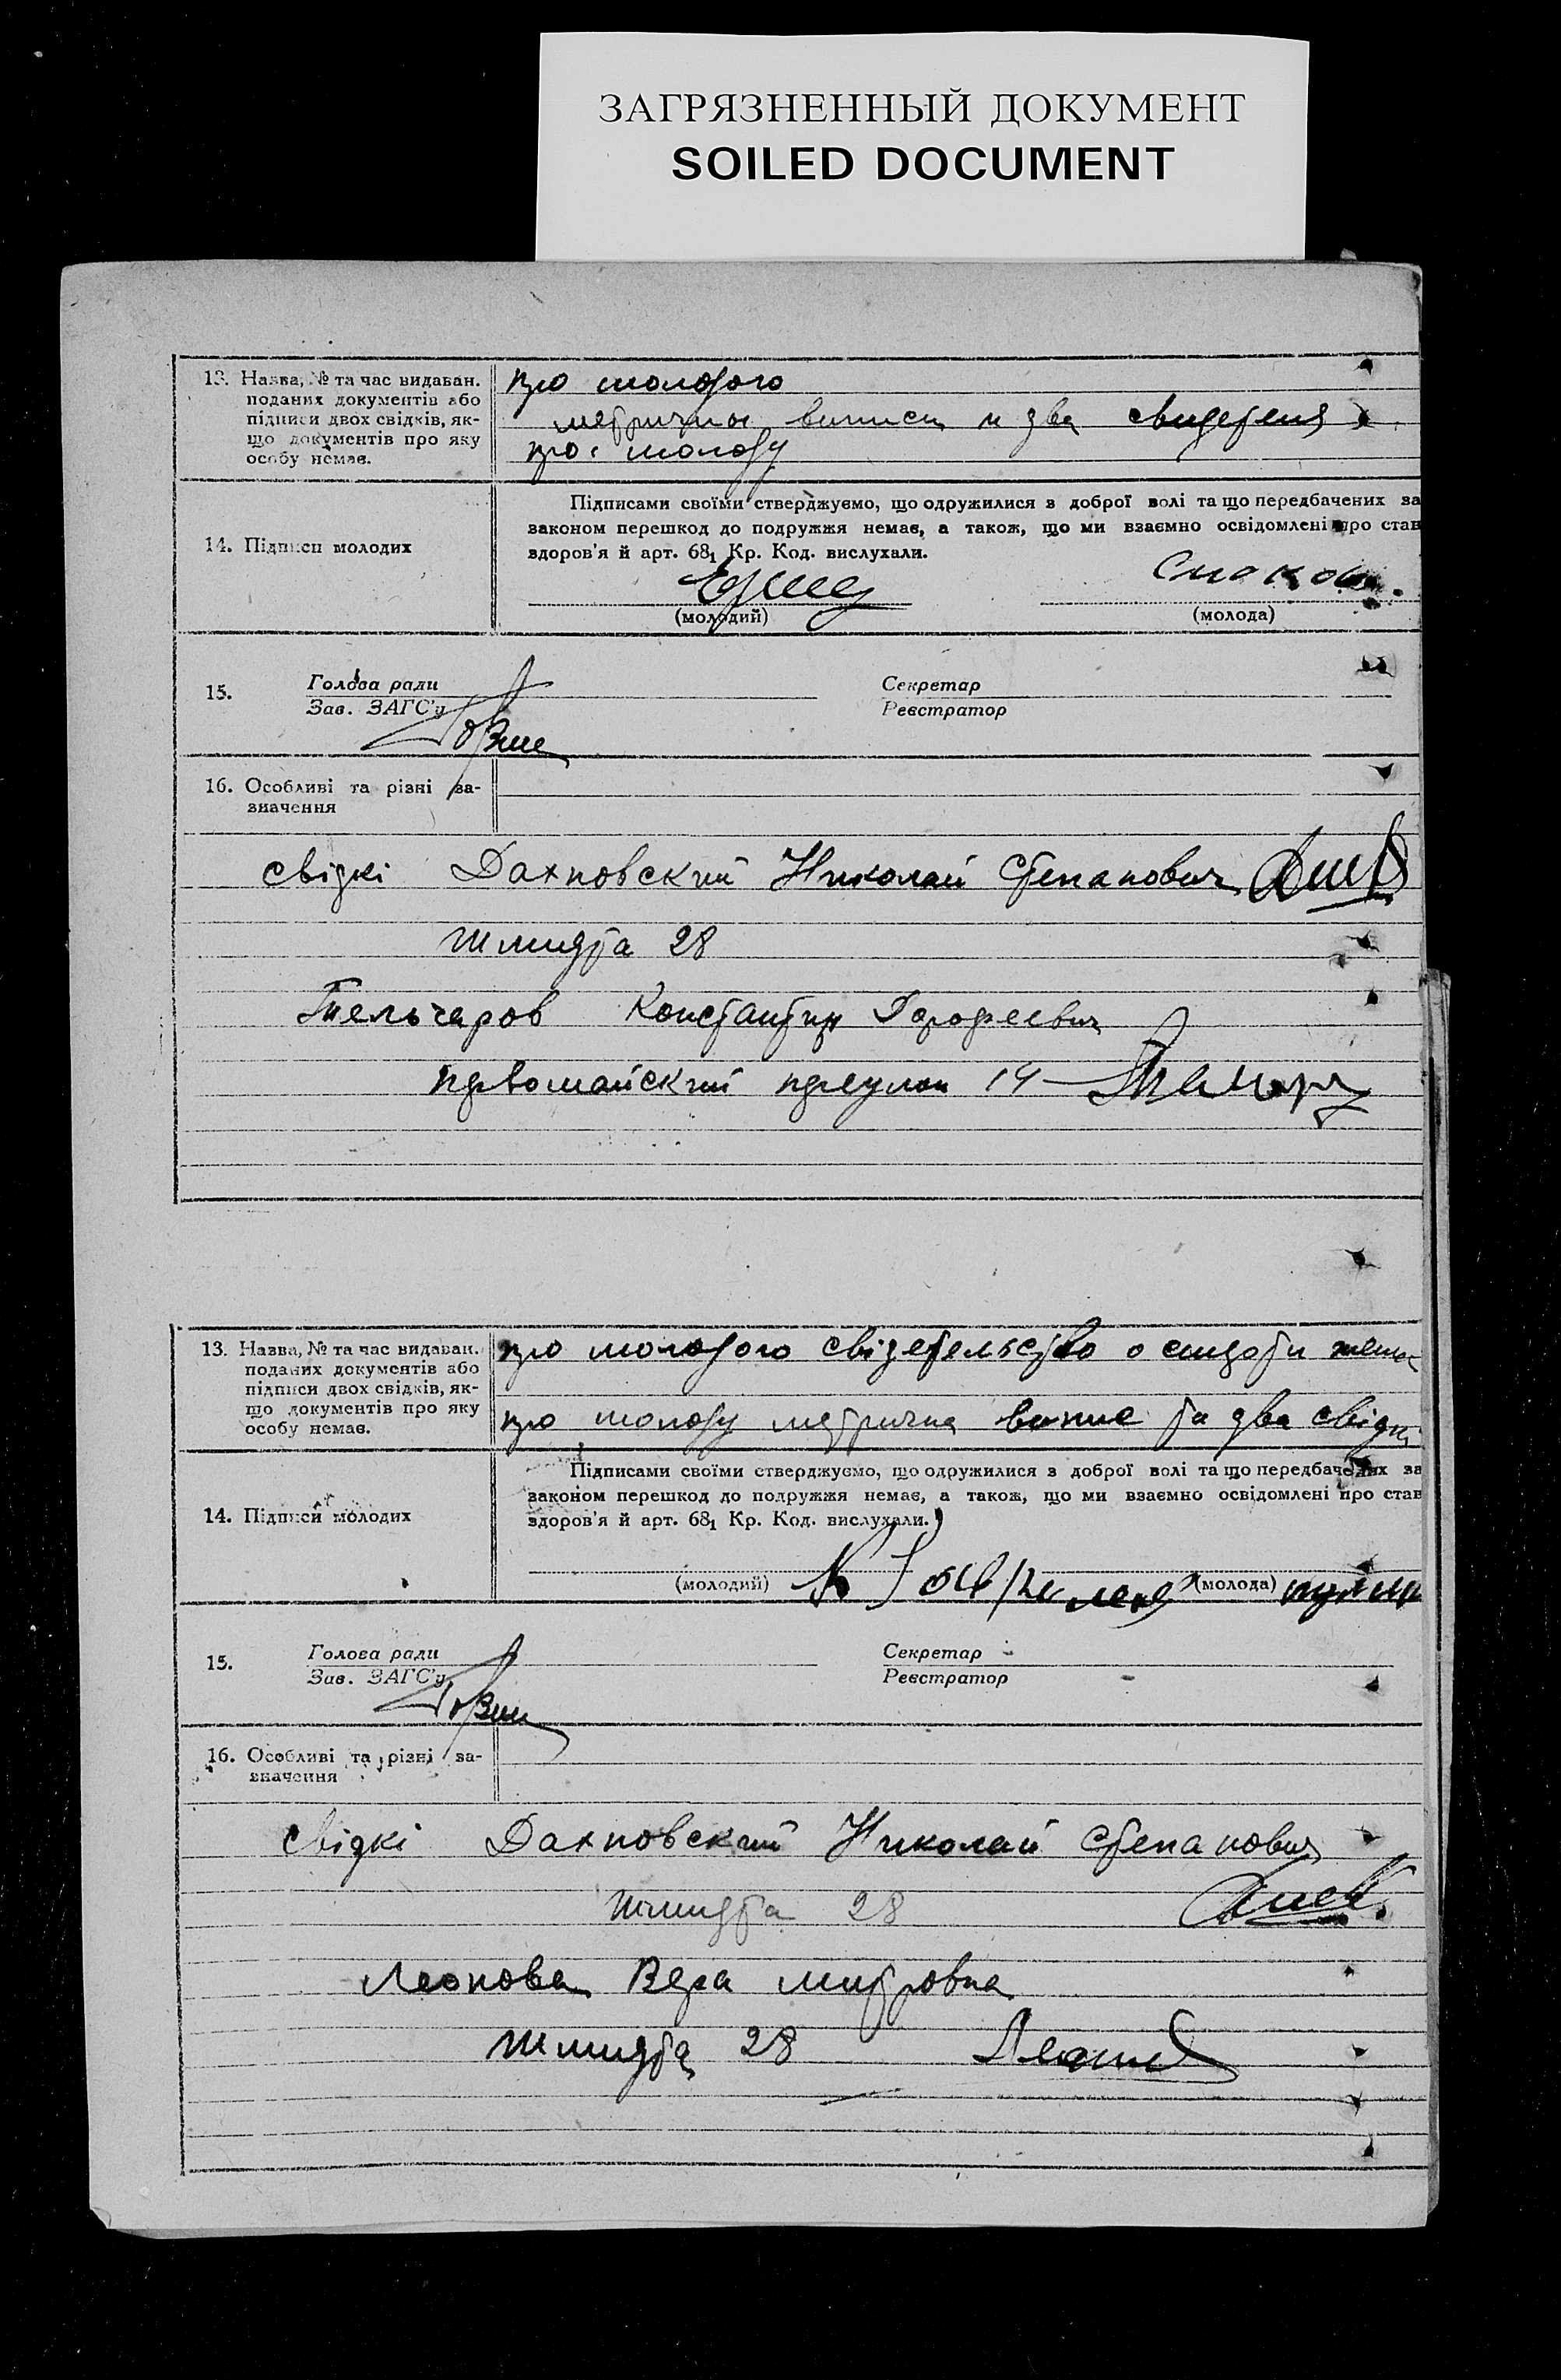 ЗАГРЯЗНЕННЫЙ ДОКУМЕНТ
SOILED DOCUMENT
13. Назва, № та час видаван.
поданих документів або
підписи двох свідків, як-
що документів про яку
особу немає.
про молодого
метричны выписи и два свидетеля
про молоду
14. Підписи молодих
Підписами своїми стверджуємо, що одружилися з доброї волі та що передбачених за
законом перешкод до подружжя немає, а також, що ми взаємно освідомлені про стан
здоров'я й арт. 68₁ Кр. Код. вислухали.
(молодий)
(молода)
15.
Голова ради
Зав. ЗАГС'у
Секретар
Реєстратор
16. Особливі та різні за-
значення
свідкі Дахновский Николай Степанович
Шмидта 28
Константин Дорофеевич
первомайский переулок 14
13. Назва, № та час видаван.
поданих документів або
підписи двох свідків, як-
що документів про яку
особу немає.
про молодого свідетельство о смерти жены
про молоду метрична випис та два свідки
14. Підписи молодих
Підписами своїми стверджуємо, що одружилися з доброї волі та що передбачених за
законом перешкод до подружжя немає, а також, що ми взаємно освідомлені про стан
здоров'я й арт. 68₁ Кр. Код. вислухали.
(молодий)
(молода)
15.
Голова ради
Зав. ЗАГС'у
Секретар
Реєстратор
16. Особливі та різні за-
значення
свідкі Дахновский Николай Степанович
Шмидта 28
Леонова Вера Митровна
Шмидта 28